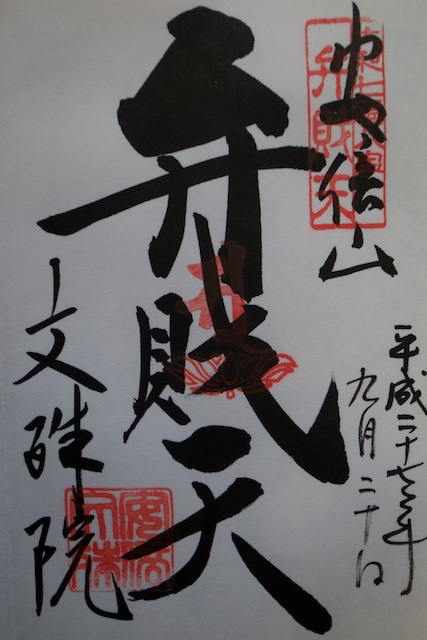 安倍山
弁財天
平成二十七年
九月二十日
弁財天
文殊院